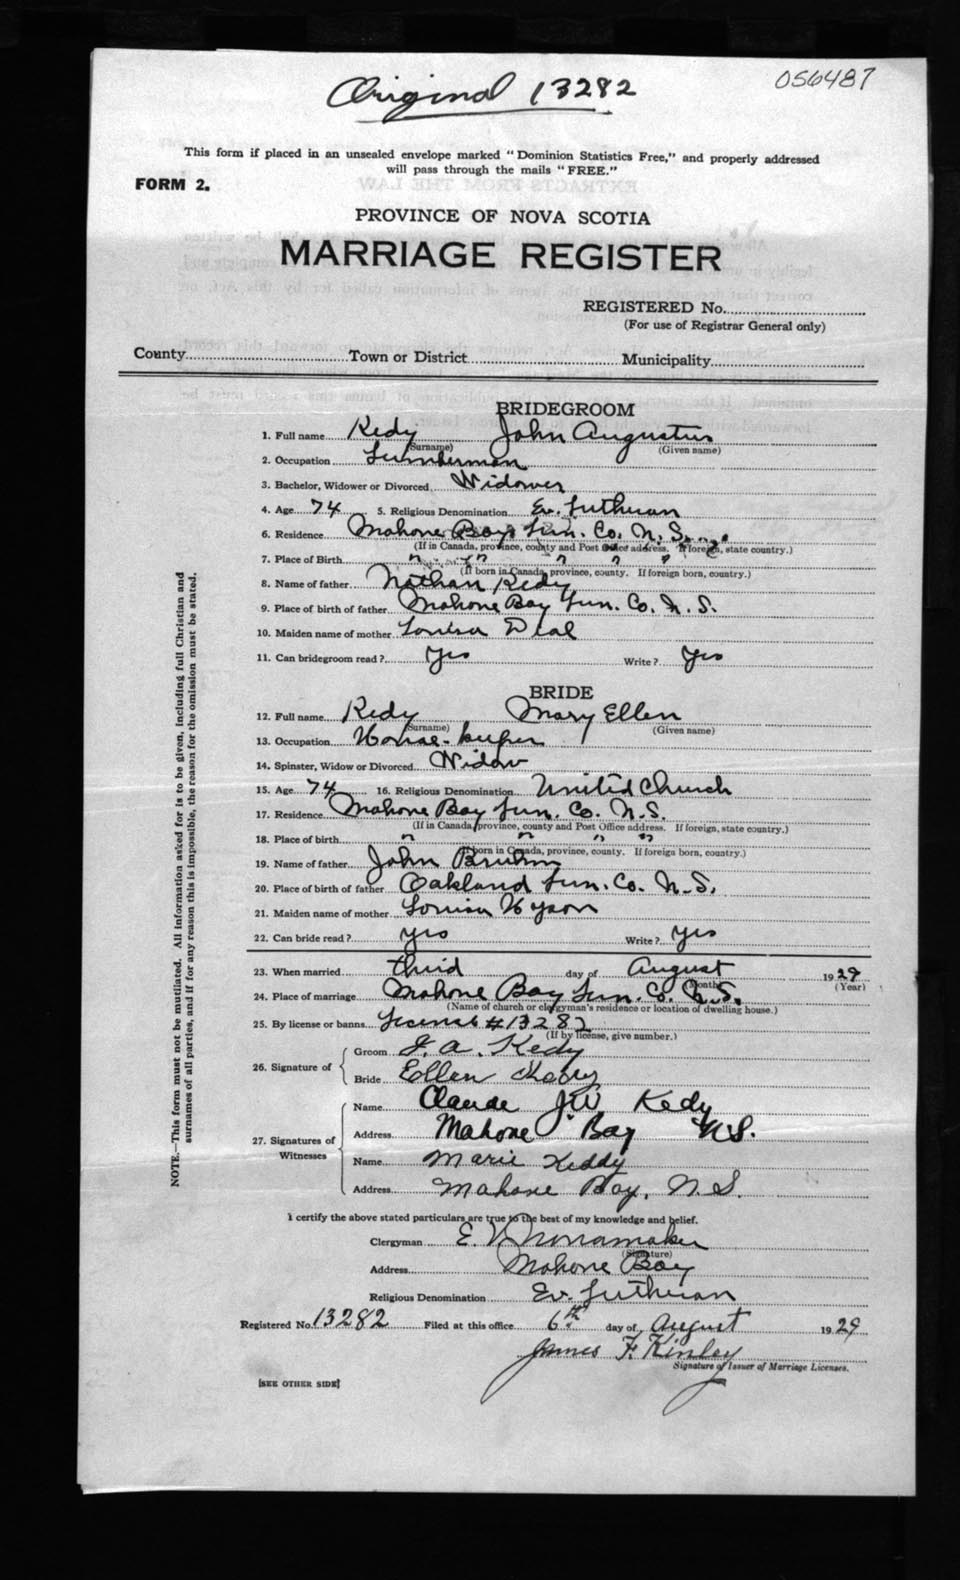 Original 13282
056487
This form if placed in an unsealed envelope marked "Dominion Statistics Free," and properly addressed
will pass through the mails "FREE."
FORM 2.
PROVINCE OF NOVA SCOTIA
MARRIAGE REGISTER
REGISTERED No.
(For use of Registrar General only)
County Town or District Municipality
BRIDEGROOM
1. Full name Kedy John Augustus
(Surname) (Given name)
2. Occupation Lumberman
3. Bachelor, Widower or Divorced Widower
4. Age 74 5. Religious Denomination Ev. Lutheran
6. Residence Mahone Bay Lun. Co. N. S.
(If in Canada, province, county and Post Office address. If foreign, state country.)
7. Place of Birth " " " " "
(If born in Canada, province, county. If foreign born, country.)
8. Name of father Nathan Kedy
9. Place of birth of father Mahone Bay Lun. Co. N. S.
10. Maiden name of mother Louisa Deal
11. Can bridegroom read? Yes Write? Yes
BRIDE
12. Full name Kedy Mary Ellen
(Surname) (Given name)
13. Occupation House-keeper
14. Spinster, Widow or Divorced Widow
15. Age 74 16. Religious Denomination United Church
17. Residence Mahone Bay Lun. Co. N.S.
(If in Canada, province, county and Post Office address. If foreign, state country.)
18. Place of birth " " " "
(If born in Canada, province, county. If foreign born, country.)
19. Name of father John Bruhm
20. Place of birth of father Oakland Lun. Co. N. S.
21. Maiden name of mother Louisa Hyson
22. Can bride read? Yes Write? Yes
23. When married third day of August 1929
(Month) (Year)
24. Place of marriage Mahone Bay Lun. Co. N.S.
(Name of church or clergyman's residence or location of dwelling house.)
25. By license or banns License #13282
(If by license, give number.)
26. Signature of Groom J. A. Kedy
Bride Ellen Kedy
27. Signatures of Witnesses
Name Claude JW Kedy
Address Mahone Bay N.S.
Name Marie Keddy
Address Mahone Bay, N. S.
I certify the above stated particulars are true to the best of my knowledge and belief.
Clergyman E. V. Nonamaker
(Signature)
Address Mahone Bay
Religious Denomination Ev. Lutheran
Registered No. 13282 Filed at this office 6th day of August 1929
James F. Kinley
Signature of Issuer of Marriage Licenses.
[SEE OTHER SIDE]
NOTE.—This form must not be mutilated. All information asked for is to be given, including full Christian and
surnames of all parties, and if for any reason this is impossible, the reason for the omission must be stated.